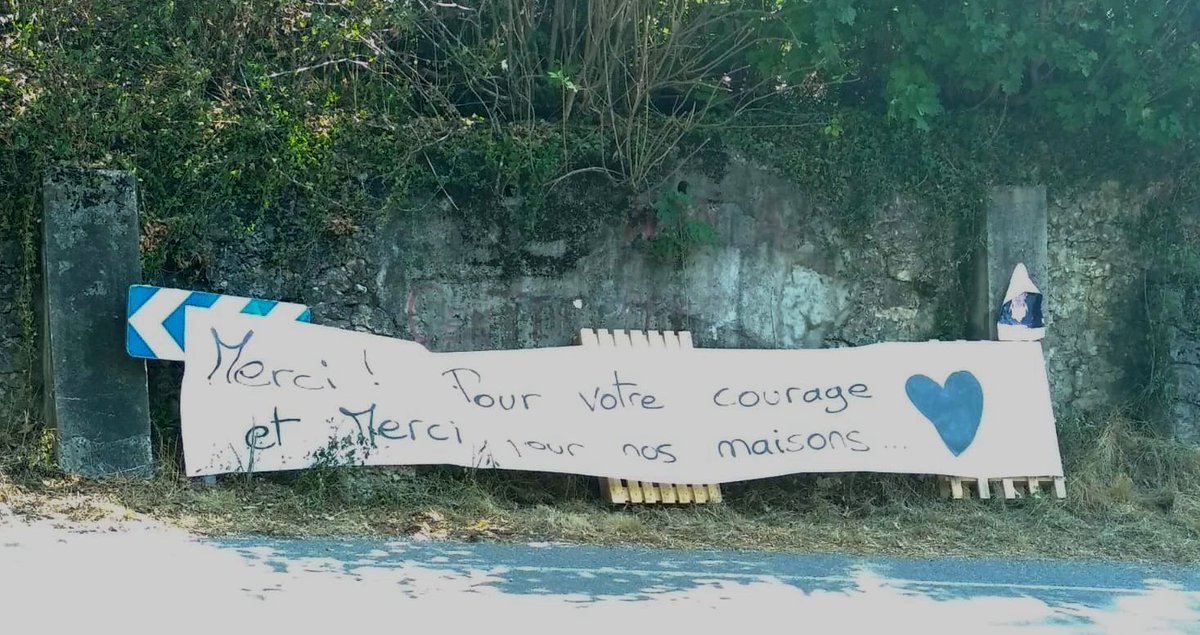 Merci ! Pour votre courage
et Merci pour nos maisons...